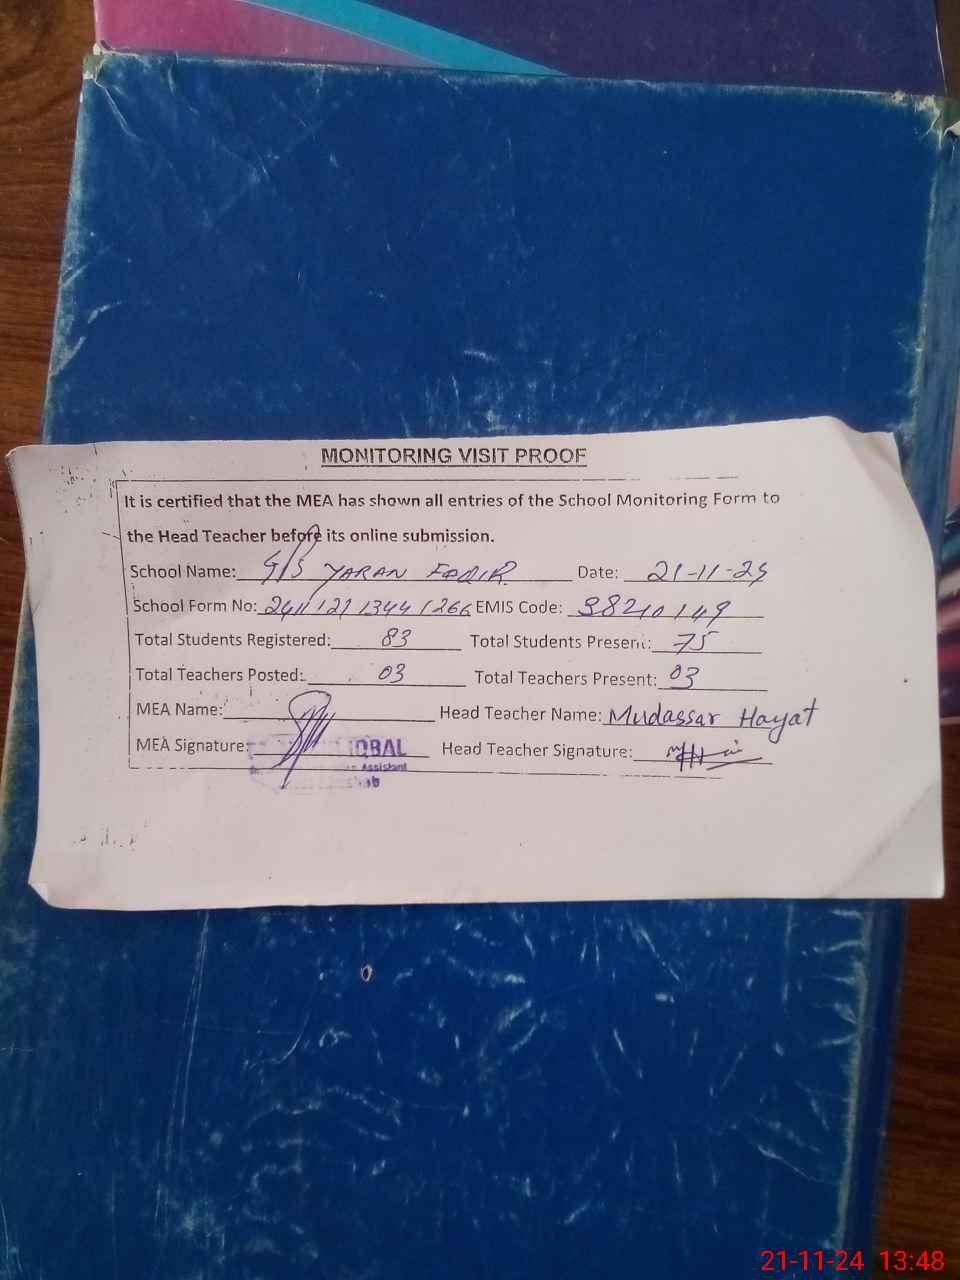 MONITORING VISIT PROOF
It is certified that the MEA has shown all entries of the School Monitoring Form to
the Head Teacher before its online submission.
School Name: G/S YARAN FAQIR Date: 21-11-24
School Form No: EMIS Code: 38210149
Total Students Registered: 83 Total Students Present: 75
Total Teachers Posted: 03 Total Teachers Present: 03
MEA Name: Head Teacher Name: Mudassar Hayat
MEA Signature: IQBAL Head Teacher Signature:
Assistant
21-11-24 13:48